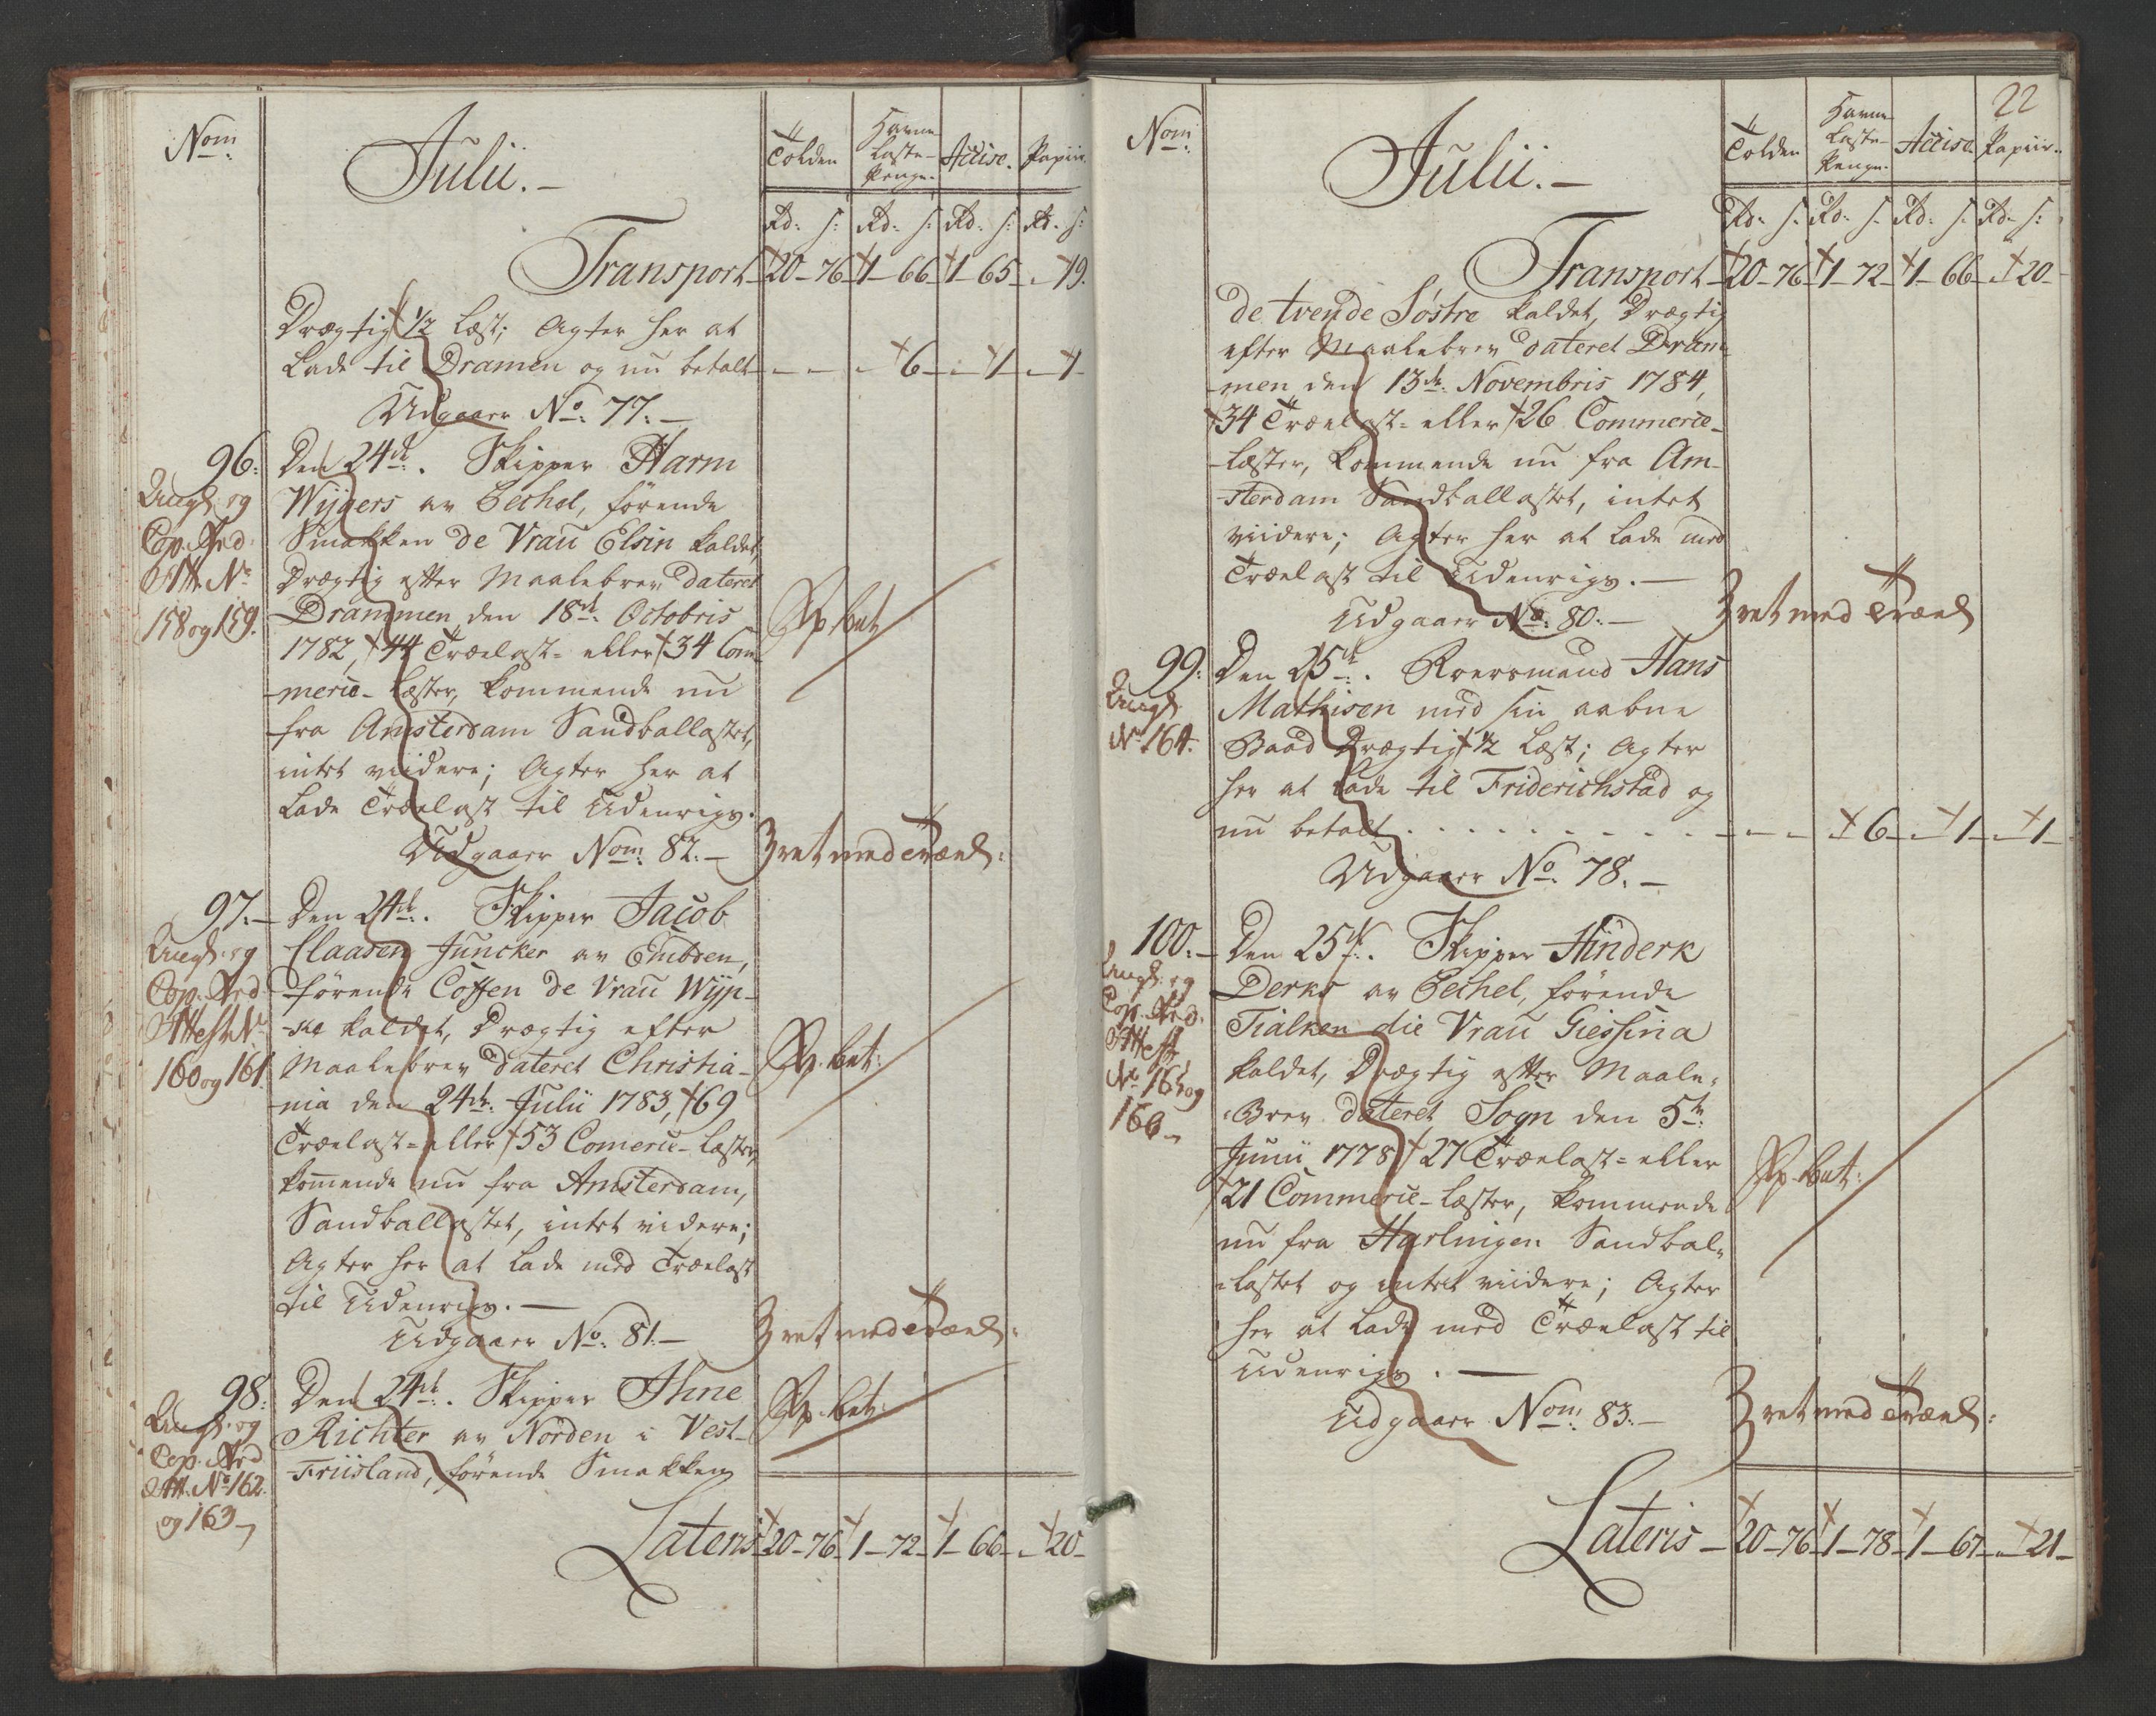 Nom:
Julii.-
Tolden
Havne-
Laste-
Penge.
Accise.
Papiir.
Rd. s: Rd. s: Rd. s: Rd. s:
Transport 20-76 1-66 1-65 - 19.
Drægtig 1/2 Læst; Agter her at
Lade til Dramen og nu betalt - - - 6 - 1 - 1
Udgaaer No: 77.-
96: Den 24de. Skipper Harm
Wijgers av Pechel, førende
Smakken de Vrau Elsin kaldet,
Drægtig efter Maalebrev dateret
Drammen den 18de Octobris
1782, 44 Trælast- eller 34 Com-
-merce-Læster, kommende nu
fra Amsterdam Sandballastet,
intet viidere; Agter her at
Lade Trælast til Udenrigs.
Udgaaer Nom: 82.-
og
Cop.
Att. No
158 og 159.
bet
med Træel:
97.- Den 24de. Skipper Jacob
Claasen Juncker av Embden,
førende Coffen de Vrau Wyp-
-ke kaldet, Drægtig efter
Maalebrev dateret Christia-
-nia den 24de Julii 1783, 69
Trælast- eller 53 Comerce-Læster,
kommende nu fra Amsterdam,
Sandballastet, intet videre;
Agter her at Lade med Trælast
til Udenrigs.-
Udgaaer No: 81.-
og
Cop.
Attest No
160 og 161.
bet:
med Træel:
98: Den 24de. Skipper Ahne
Richter av Norden i Vest-
Friisland, førende Smakken
og
Cop.
Att. No 162
og 163
bet:
Lateris 20-76 1-72 1-66 - 20-
22
Nom:
Julii.-
Tolden
Havne-
Laste-
Penge.
Accise.
Papiir.
Rd. s. Rd. s. Rd. s. Rd. s:
Transport 20-76 1-72 1-66 - 20-
de tvende Søstre kaldet, Drægtig
efter Maalebrev dateret Dram-
-men den 13de Novembris 1784,
34 Trælast- eller 26 Commerce-
-Læster, kommende nu fra Am-
-sterdam Sandballastet, intet
viidere; Agter her at Lade med
Trælast til Udenrigs.-
Udgaaer No: 80.-
med Træel
99: Den 25de. Roersmand Hans
Mathisen med sin aabne
Baad Drægtig 1/2 Læst; Agter
her at Lade til Friderichstad og
nu betalt - - - 6 - 1 - 1
Udgaaer No: 78.-
No 164.
100.- Den 25de. Skipper Hinderk
Derks av Pechel, førende
Tialken die Vrau Giessina
kaldet, Drægtig efter Maale-
-Brev dateret Sogn den 5te
Junii 1778 27 Trælast- eller
21 Commerce-Læster, kommende
nu fra Harlingen Sandbal-
-lastet og intet viidere; Agter
her at Lade med Trælast til
Udenrigs.-
Udgaaer Nom: 83.-
og
Cop.
Attest
No 165 og
166
bet:
med Træel:
Lateris - 20-76 1-78 1-67 - 21-